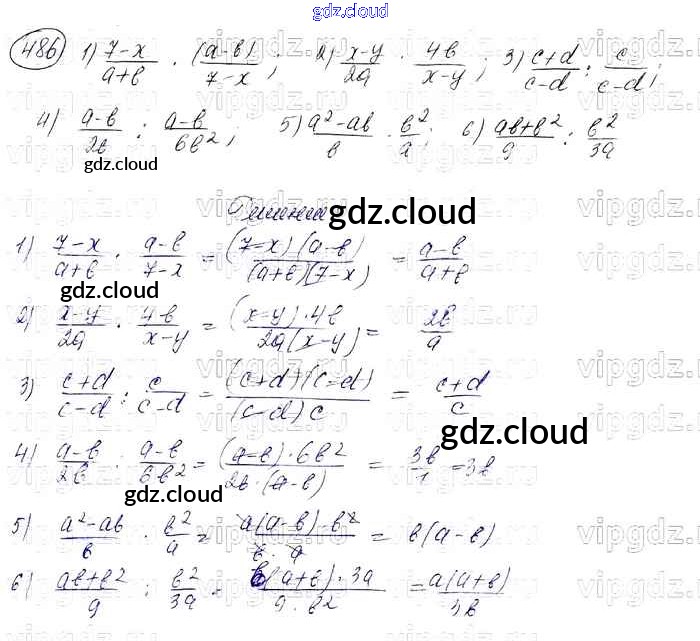 gdz.cloud
486 1) (7-x)/(a+b) · (a-b)/(7-x); 2) (x-y)/(2a) · (4b)/(x-y); 3) (c+d)/(c-d) : c/(c-d);
4) (a-b)/(2b) : (a-b)/(6b²); 5) (a²-ab)/b · b²/a; 6) (ab+b²)/9 : b²/(3a)
gdz.cloud
Решение
gdz.cloud
1) (7-x)/(a+b) · (a-b)/(7-x) = ((7-x)(a-b))/((a+b)(7-x)) = (a-b)/(a+b)
gdz.cloud
2) (x-y)/(2a) · (4b)/(x-y) = ((x-y)·4b)/(2a(x-y)) = (2b)/a
3) (c+d)/(c-d) : c/(c-d) = ((c+d)(c-d))/((c-d)c) = (c+d)/c
gdz.cloud
4) (a-b)/(2b) : (a-b)/(6b²) = ((a-b)·6b²)/(2b·(a-b)) = (3b)/1 = 3b
gdz.cloud
5) (a²-ab)/b · b²/a = (a(a-b)·b²)/(b·a) = b(a-b)
6) (ab+b²)/9 : b²/(3a) = (b(a+b)·3a)/(9·b²) = (a(a+b))/(3b)